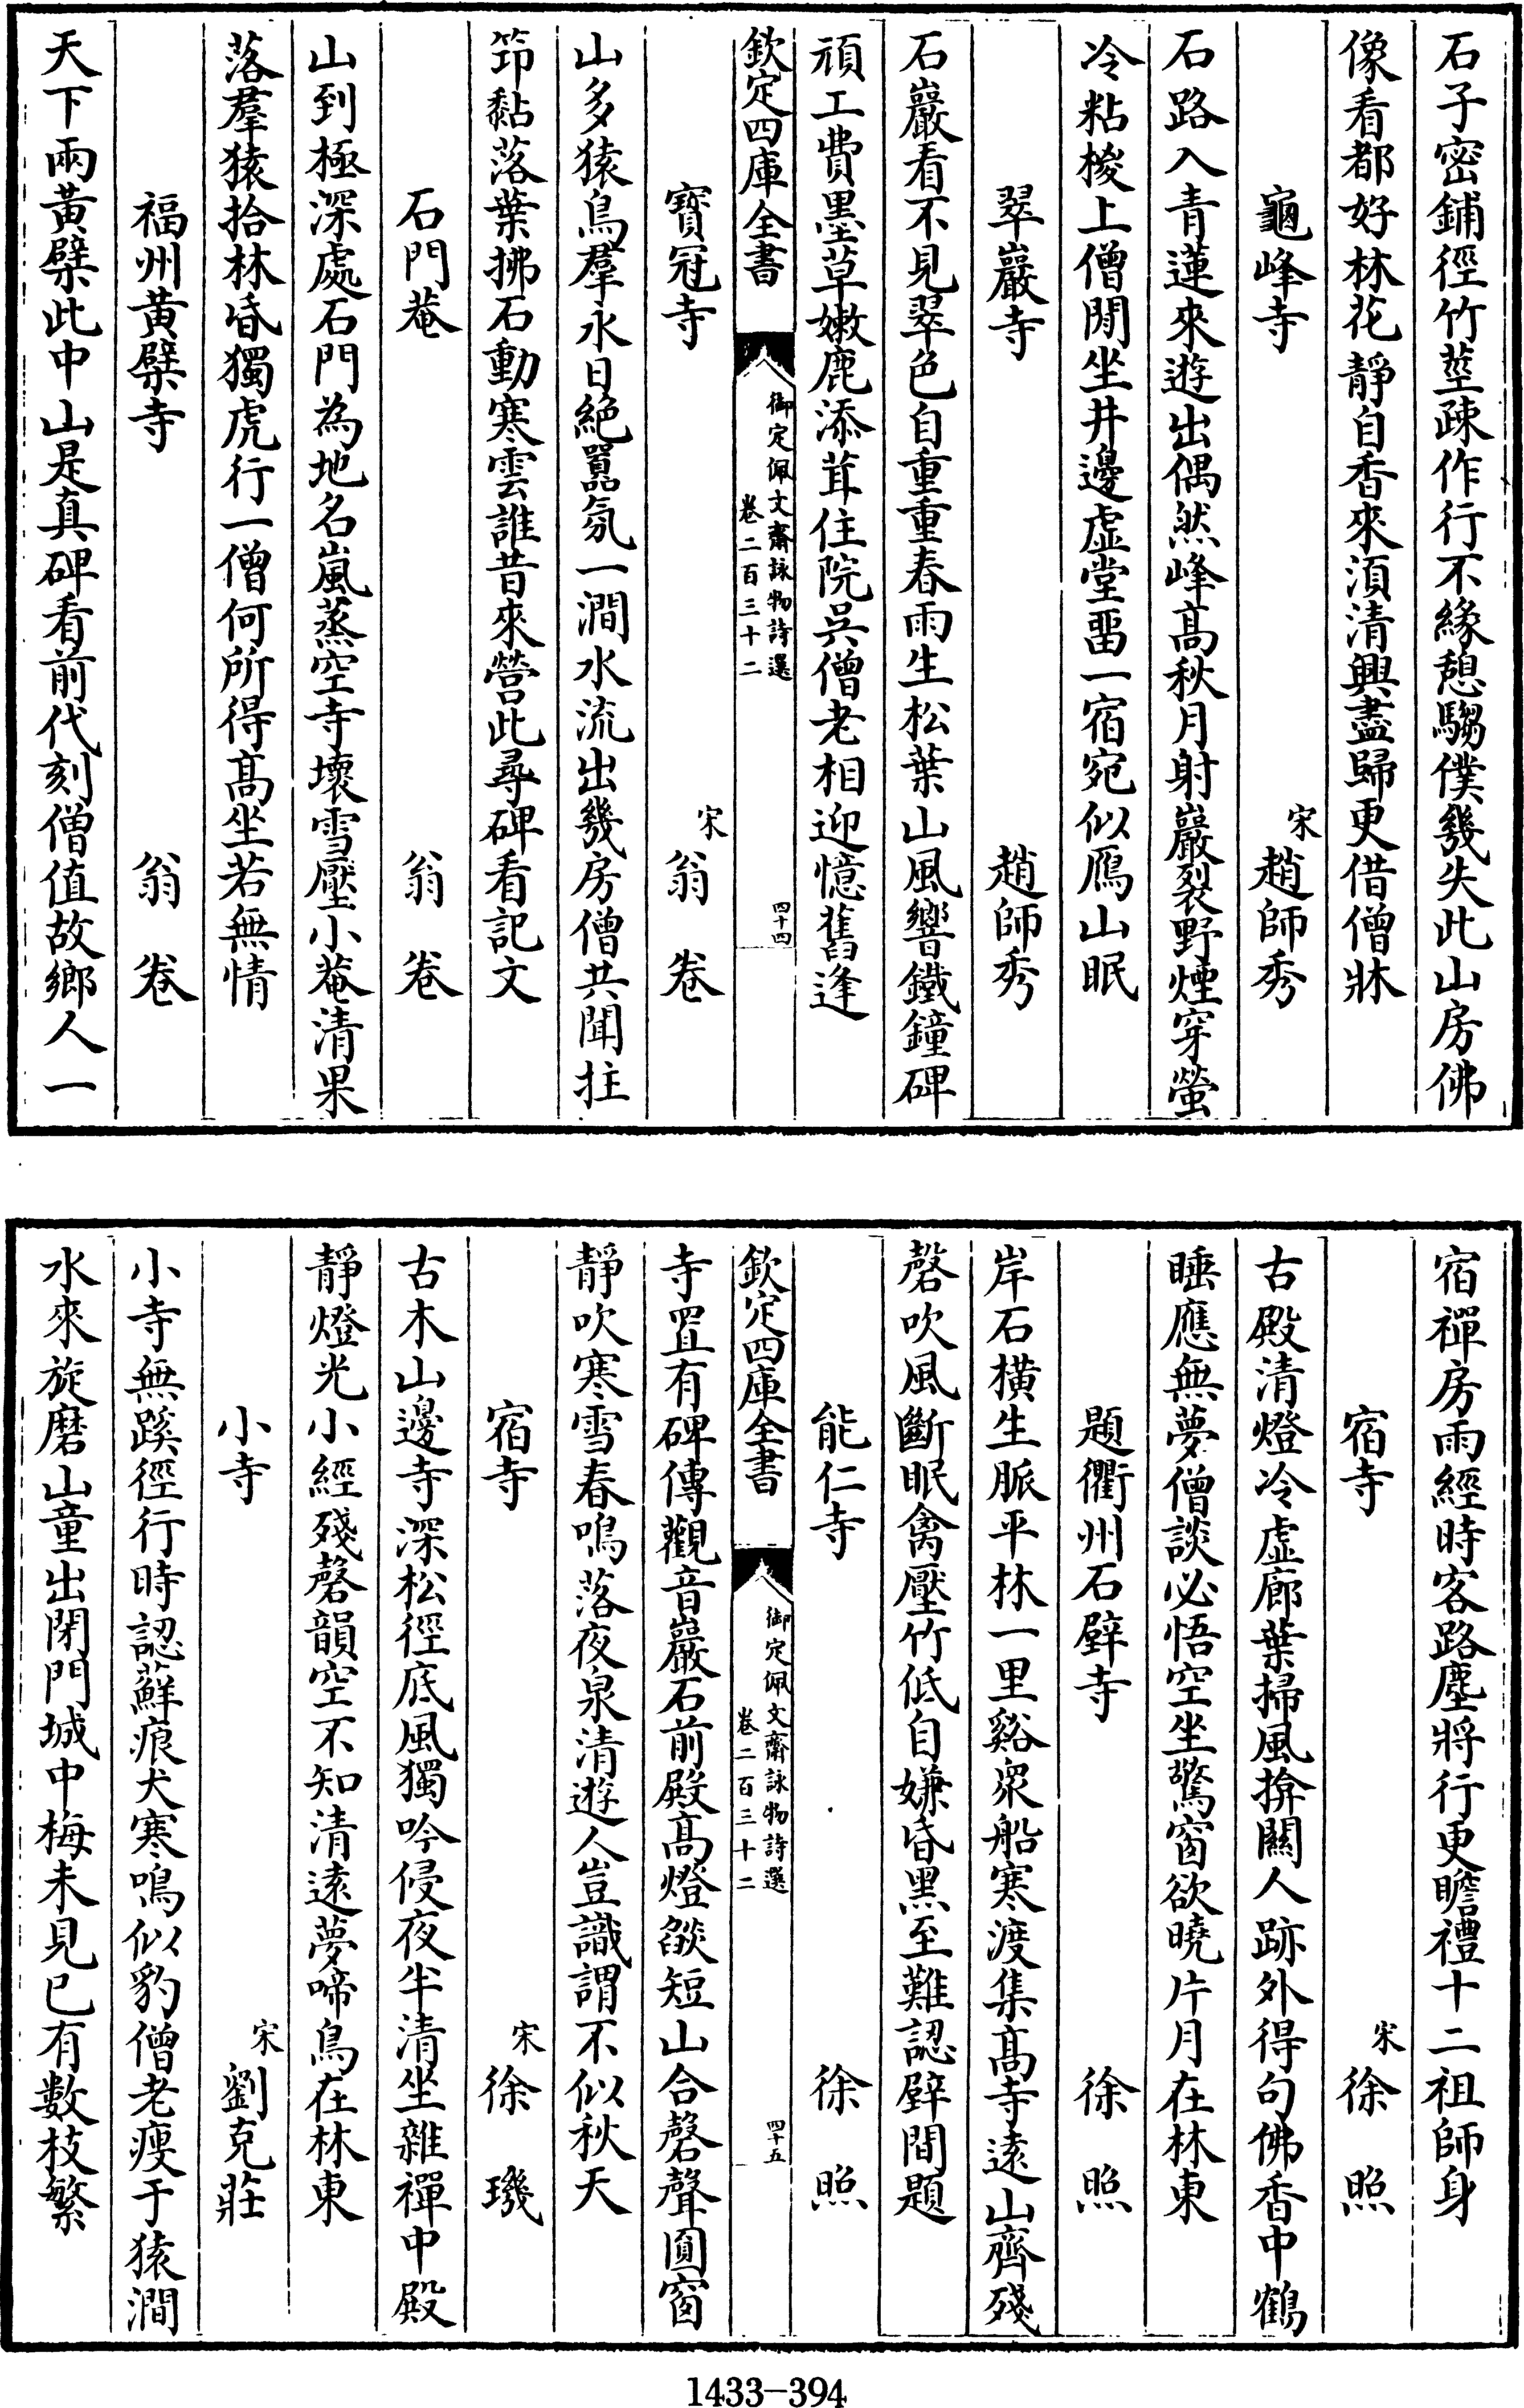 石子密鋪徑竹莖疎作行不緣憩騶僕幾失此山房佛
像看都好林花靜自香來湏清興盡歸更借僧牀
龜峰寺 宋趙師秀
石路入青蓮來遊出偶然峰髙秋月射巖裂野煙穿螢
冷粘梭上僧閒坐井邊虛堂畱一宿宛似鴈山眠
翠巖寺 趙師秀
石巖看不見翠色自重重春雨生松葉山風響鐵鐘碑
頑工費墨草嫩鹿添茸住院吳僧老相迎憶舊逢
欽定四庫全書 御定佩文齋詠物詩選 卷二百三十二 四十四
寶冠寺 宋翁卷
山多猿鳥羣永日絶囂氛一澗水流出幾房僧共聞拄
筇黏落葉拂石動寒雲誰昔來營此尋碑看記文
石門菴 翁卷
山到極深處石門為地名嵐蒸空寺壞雪壓小菴清果
落羣猿拾林昏獨虎行一僧何所得髙坐若無情
福州黄檗寺 翁卷
天下兩黃檗此中山是真碑看前代刻僧值故鄉人一
宿禪房雨經時客路塵將行更瞻禮十二祖師身
宿寺 宋徐照
古殿清燈冷虛廊葉掃風揜關人跡外得句佛香中鶴
睡應無夢僧談必悟空坐驚窗欲曉片月在林東
題衢州石壁寺 徐照
岸石橫生脈平林一里谿衆船寒渡集髙寺遠山齊殘
磬吹風斷眠禽壓竹低自嫌昏黑至難認壁間題
能仁寺 徐照
欽定四庫全書 御定佩文齋詠物詩選 卷二百三十二 四十五
寺置有碑傳觀音巖石前殿髙燈燄短山合磬聲圓窗
靜吹寒雪春鳴落夜泉清遊人豈識謂不似秋天
宿寺 宋徐璣
古木山邊寺深松徑底風獨吟侵夜半清坐雜禪中殿
靜燈光小經殘磬韻空不知清遠夢啼鳥在林東
小寺 宋劉克莊
小寺無蹊徑行時認蘚痕犬寒鳴似豹僧老瘦于猿澗
水來旋磨山童出閉門城中梅未見已有數枝繁
1433-394